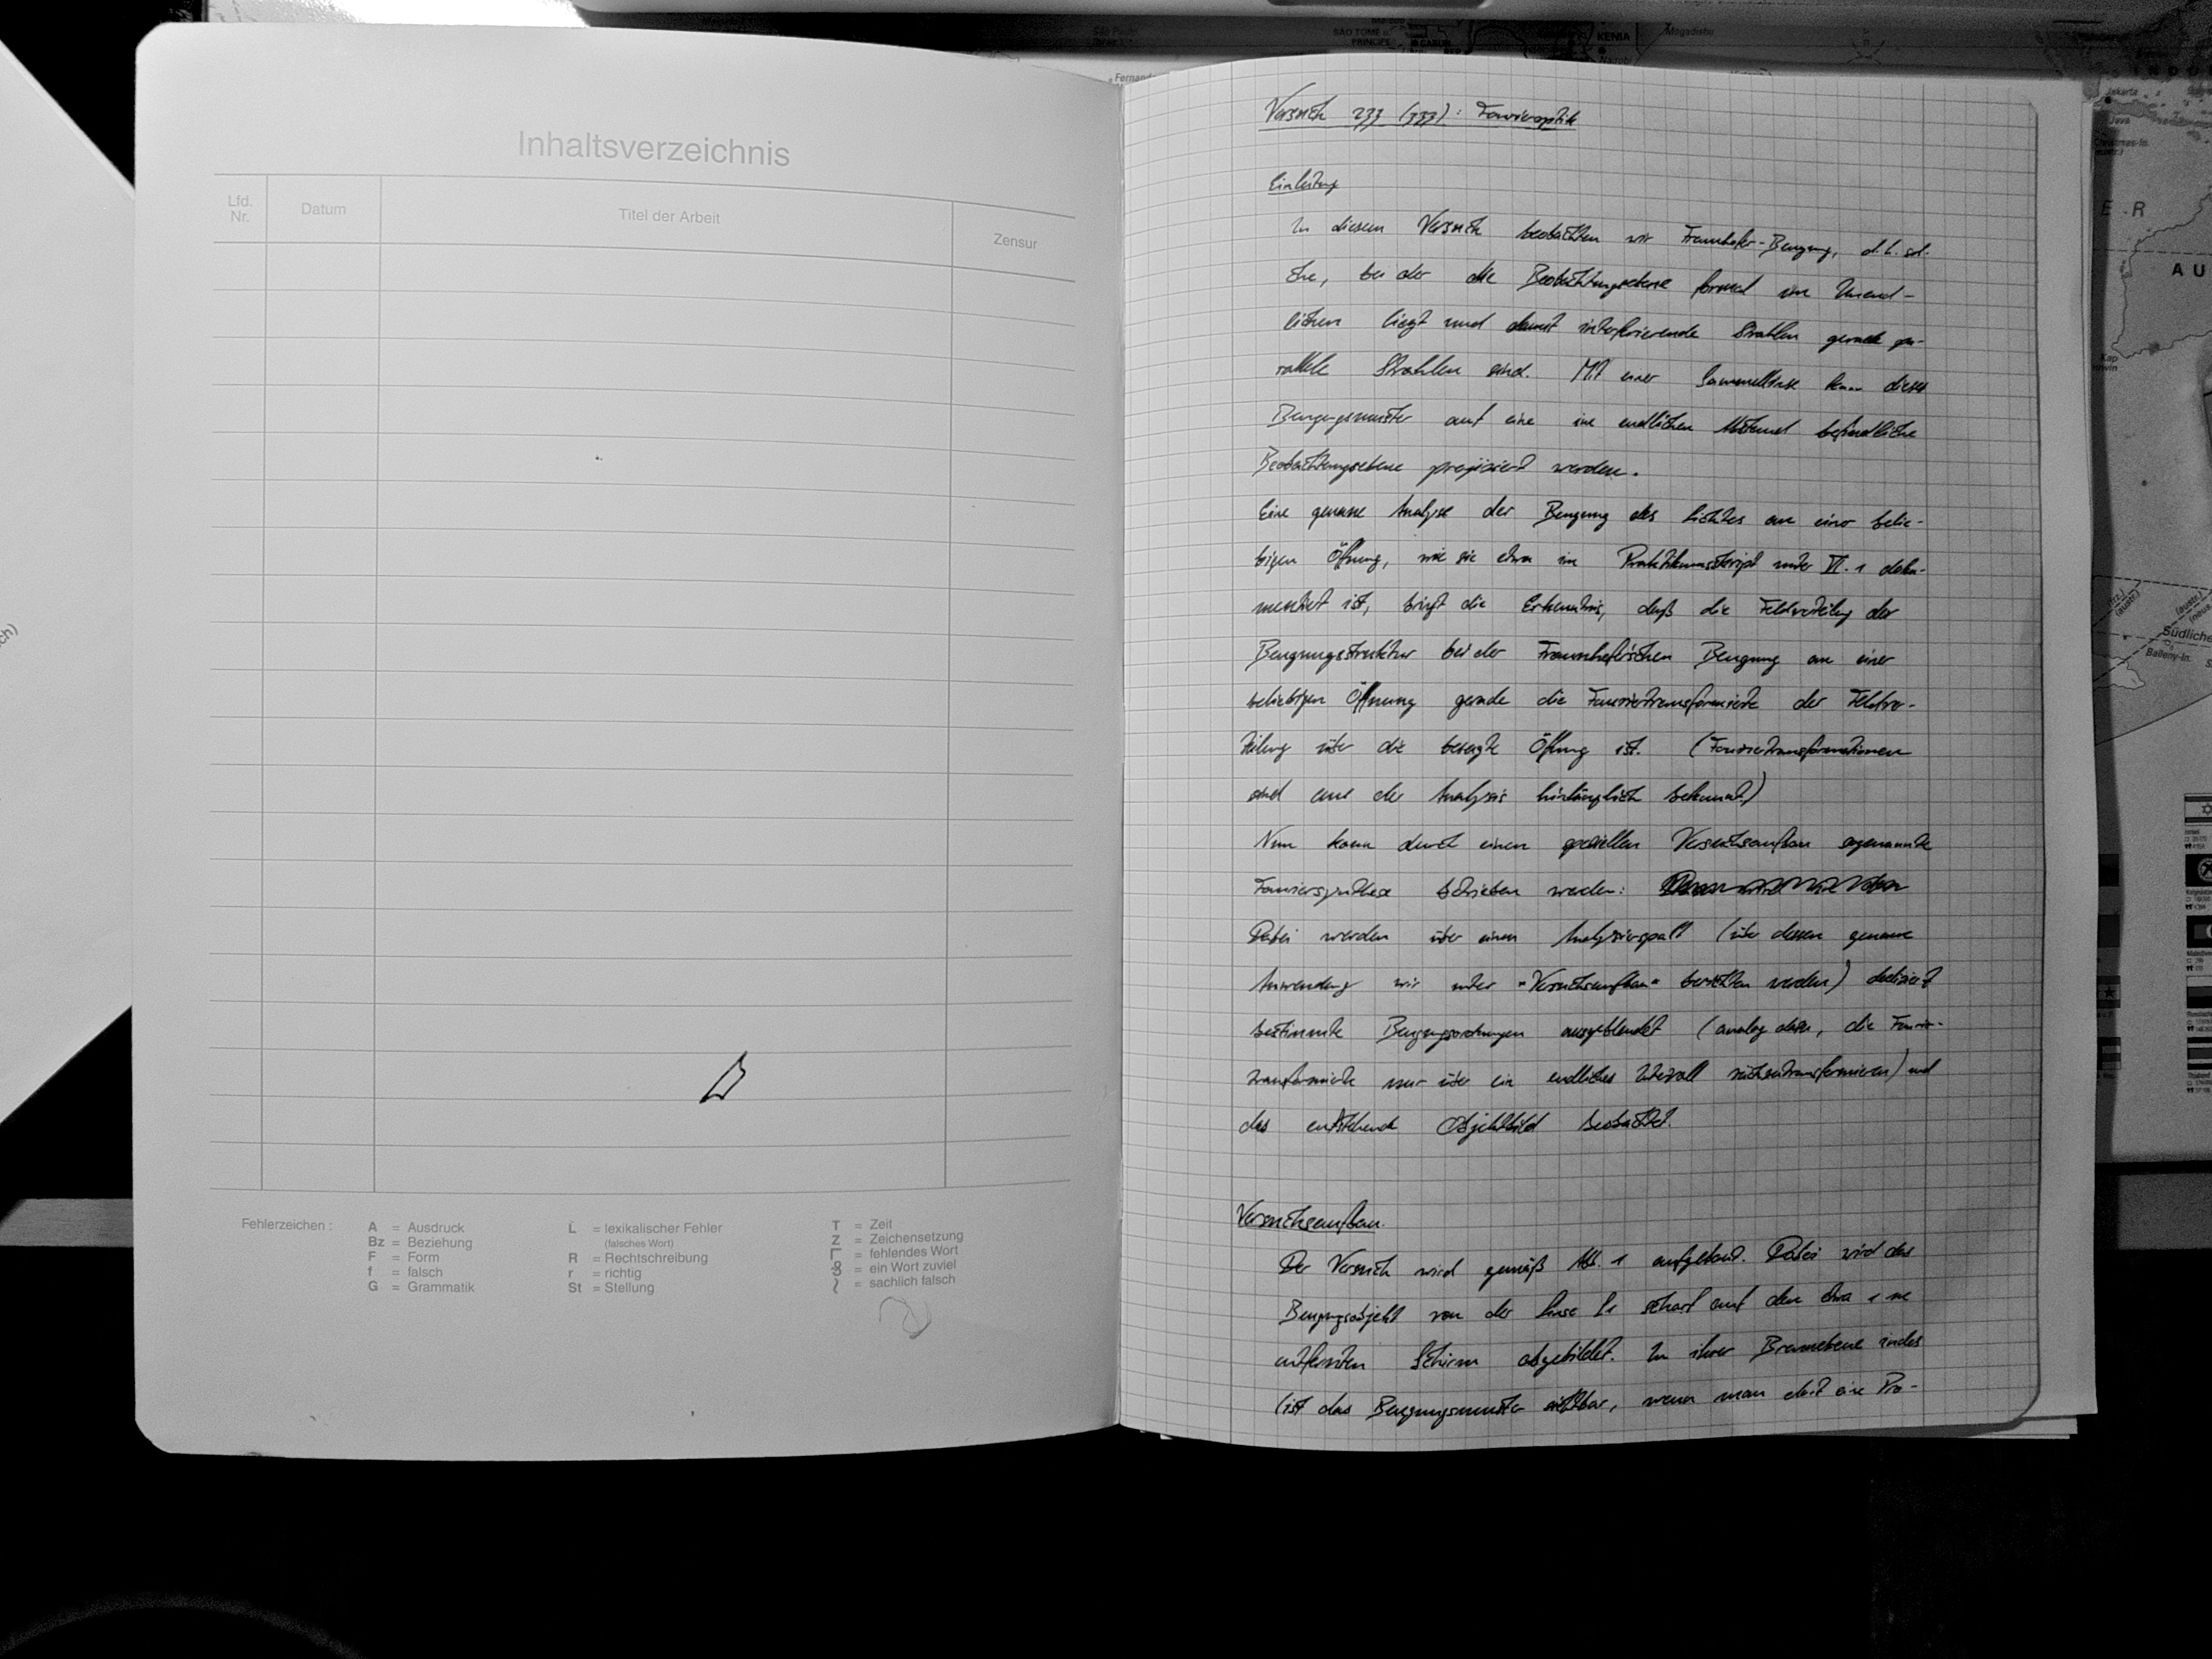 Inhaltsverzeichnis
Lfd. Nr.
Datum
Titel der Arbeit
Zensur
Fehlerzeichen :
A = Ausdruck
Bz = Beziehung
F = Form
f = falsch
G = Grammatik
L = lexikalischer Fehler
(falsches Wort)
R = Rechtschreibung
r = richtig
St = Stellung
T = Zeit
Z = Zeichensetzung
= fehlendes Wort
= ein Wort zuviel
= sachlich falsch
Versuch 233 (333): Fourieroptik
Einleitung
In diesem Versuch beobachten wir Fraunhofer-Beugung, d.h. sol-
che, bei der die Beobachtungsebene formal im Unend-
lichen liegt und damit interferierende Strahlen gerade pa-
rallele Strahlen sind. Mit einer Sammellinse kann dieses
Beugungsmuster auf eine im endlichen Abstand befindliche
Beobachtungsebene projiziert werden.
Eine genaue Analyse der Beugung des Lichtes an einer belie-
bigen Öffnung, wie sie etwa im Praktikumsskript unter VI.1 doku-
mentiert ist, bringt die Erkenntnis, daß die Feldverteilung der
Beugungsstruktur bei der Fraunhoferschen Beugung an einer
beliebigen Öffnung gerade die Fouriertransformierte der Feldver-
teilung über die besagte Öffnung ist. (Fouriertransformationen
sind aus der Analysis hinlänglich bekannt.)
Nun kann durch einen speziellen Versuchsaufbau sogenannte
Fouriersynthese betrieben werden:
Dabei werden über einen Analysierspalt (über dessen genaue
Anwendung wir unter "Versuchsaufbau" berichten werden) dediziert
bestimmte Beugungsordnungen ausgeblendet (analog dazu, die Fourier-
transformierte nur über ein endliches Intervall rückzutransformieren) und
das entstehende Objektbild beobachtet.
Versuchsaufbau.
Der Versuch wird gemäß Abb. 1 aufgebaut. Dabei wird das
Beugungsobjekt von der Linse L1 scharf auf den etwa 1 m
entfernten Schirm abgebildet. In ihrer Brennebene indes
ist das Beugungsmuster sichtbar, wenn man dort eine Pro-
SÃO TOMÉ u. PRINCIPE
GABUN
KENIA
Nairobi
Mogadischu
Jakarta
Java
Christmas-In.
Kap
Südliche
Balleny-In.